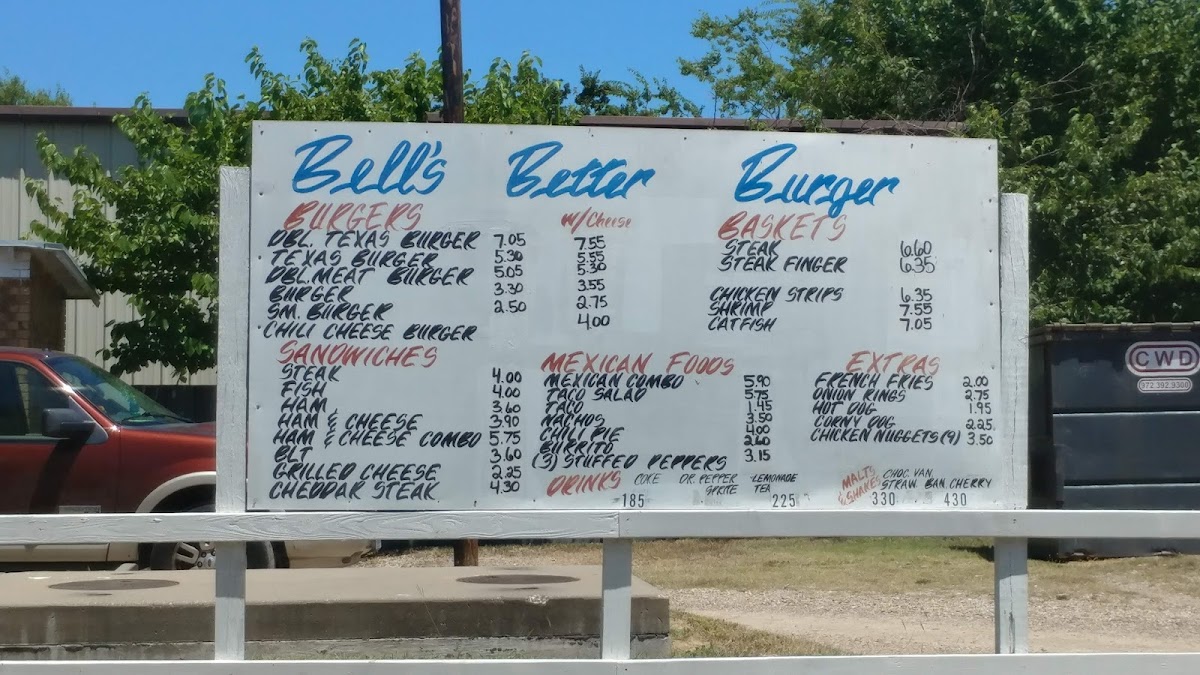 Bell's Better Burger
BURGERS w/Cheese
DBL. TEXAS BURGER 7.05 7.55
TEXAS BURGER 5.30 5.55
DBL. MEAT BURGER 5.05 5.30
BURGER 3.30 3.55
SM. BURGER 2.50 2.75
CHILI CHEESE BURGER 4.00
BASKETS
STEAK 6.60
STEAK FINGER 6.35
CHICKEN STRIPS 6.35
SHRIMP 7.55
CATFISH 7.05
SANDWICHES
STEAK 4.00
FISH 4.00
HAM 3.60
HAM & CHEESE 3.90
HAM & CHEESE COMBO 5.75
BLT 3.60
GRILLED CHEESE 2.25
CHEDDAR STEAK 4.30
MEXICAN FOODS
MEXICAN COMBO 5.90
TACO SALAD 5.75
TACO 1.45
NACHOS 3.50
CHILI PIE 4.00
BURRITO 2.60
(3) STUFFED PEPPERS 3.15
EXTRAS
FRENCH FRIES 2.00
ONION RINGS 2.75
HOT DOG 1.95
CORNY DOG 2.25
CHICKEN NUGGETS (9) 3.50
DRINKS COKE DR. PEPPER LEMONADE
SPRITE TEA
185 225
MALTS & SHAKES CHOC. VAN.
STRAW. BAN. CHERRY
330 430
CWD
972.392.9300